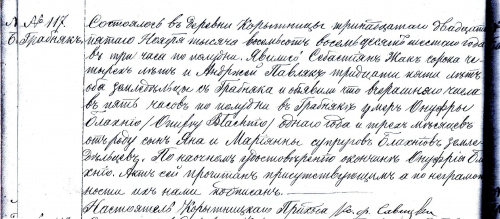 № 117.
Грабнякъ.
Состоялось въ деревни Корытницѣ тринадцатаго двадцать
пятаго Ноября тысяча восемьсотъ восемьдесятъ шестаго года
въ три часа по полудни. Явились Севастіянъ Жакъ сорока че-
тырехъ лѣтъ и Андржей Павлякъ тридцати пяти лѣтъ
оба земледѣльцы съ Грабняка и объявили что вчерашняго числа
въ пять часовъ по полудни въ Грабнякѣ умеръ Онуфрій
Блахніо /Onufry Błachnio/ одного года и трехъ мѣсяцевъ
отъ роду сынъ Яна и Маріянны супруговъ Блахніовъ земле-
дѣльцевъ. По наочномъ удостовѣреніи о кончинѣ Онуфрія Бла-
хніо. Актъ сей прочитанъ присутствующимъ а по неграмот-
ности ихъ нами подписанъ.
Настоятель Корытницкаго Прихода